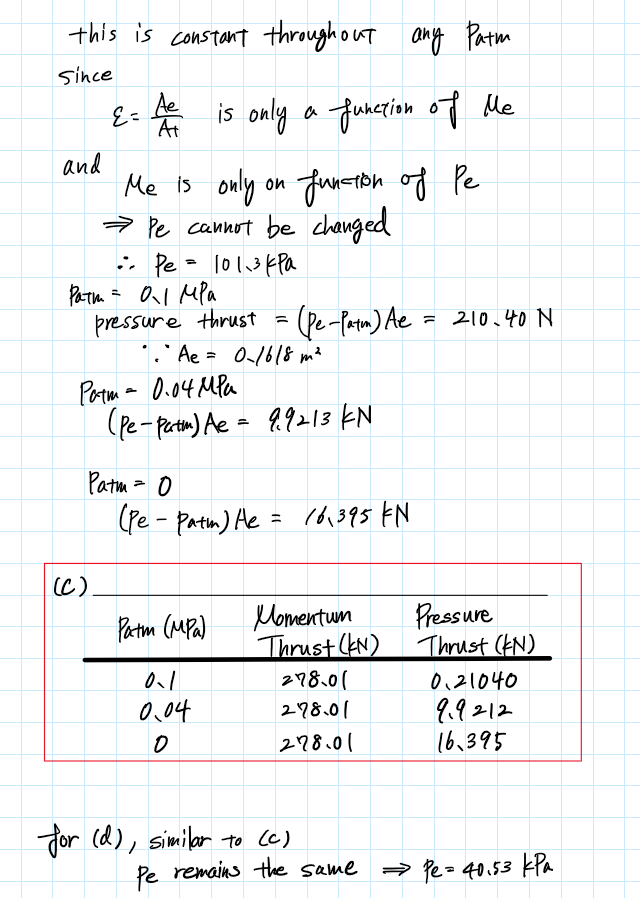 this is constant throughout any Patm
since
ε = Ae/At is only a function of Me
and
Me is only on function of Pe
⇒ Pe cannot be changed
∴ Pe = 101.3 kPa
Patm = 0.1 MPa
pressure thrust = (Pe-Patm) Ae = 210.40 N
∵ Ae = 0.1618 m²
Patm = 0.04 MPa
(Pe-Patm) Ae = 9.9213 kN
Patm = 0
(Pe - Patm) Ae = 16.395 kN
(C)
Patm (MPa) Momentum Thrust (kN) Pressure Thrust (kN)
0.1 278.01 0.21040
0.04 278.01 9.9212
0 278.01 16.395
for (d), similar to (c)
Pe remains the same ⇒ Pe = 40.53 kPa